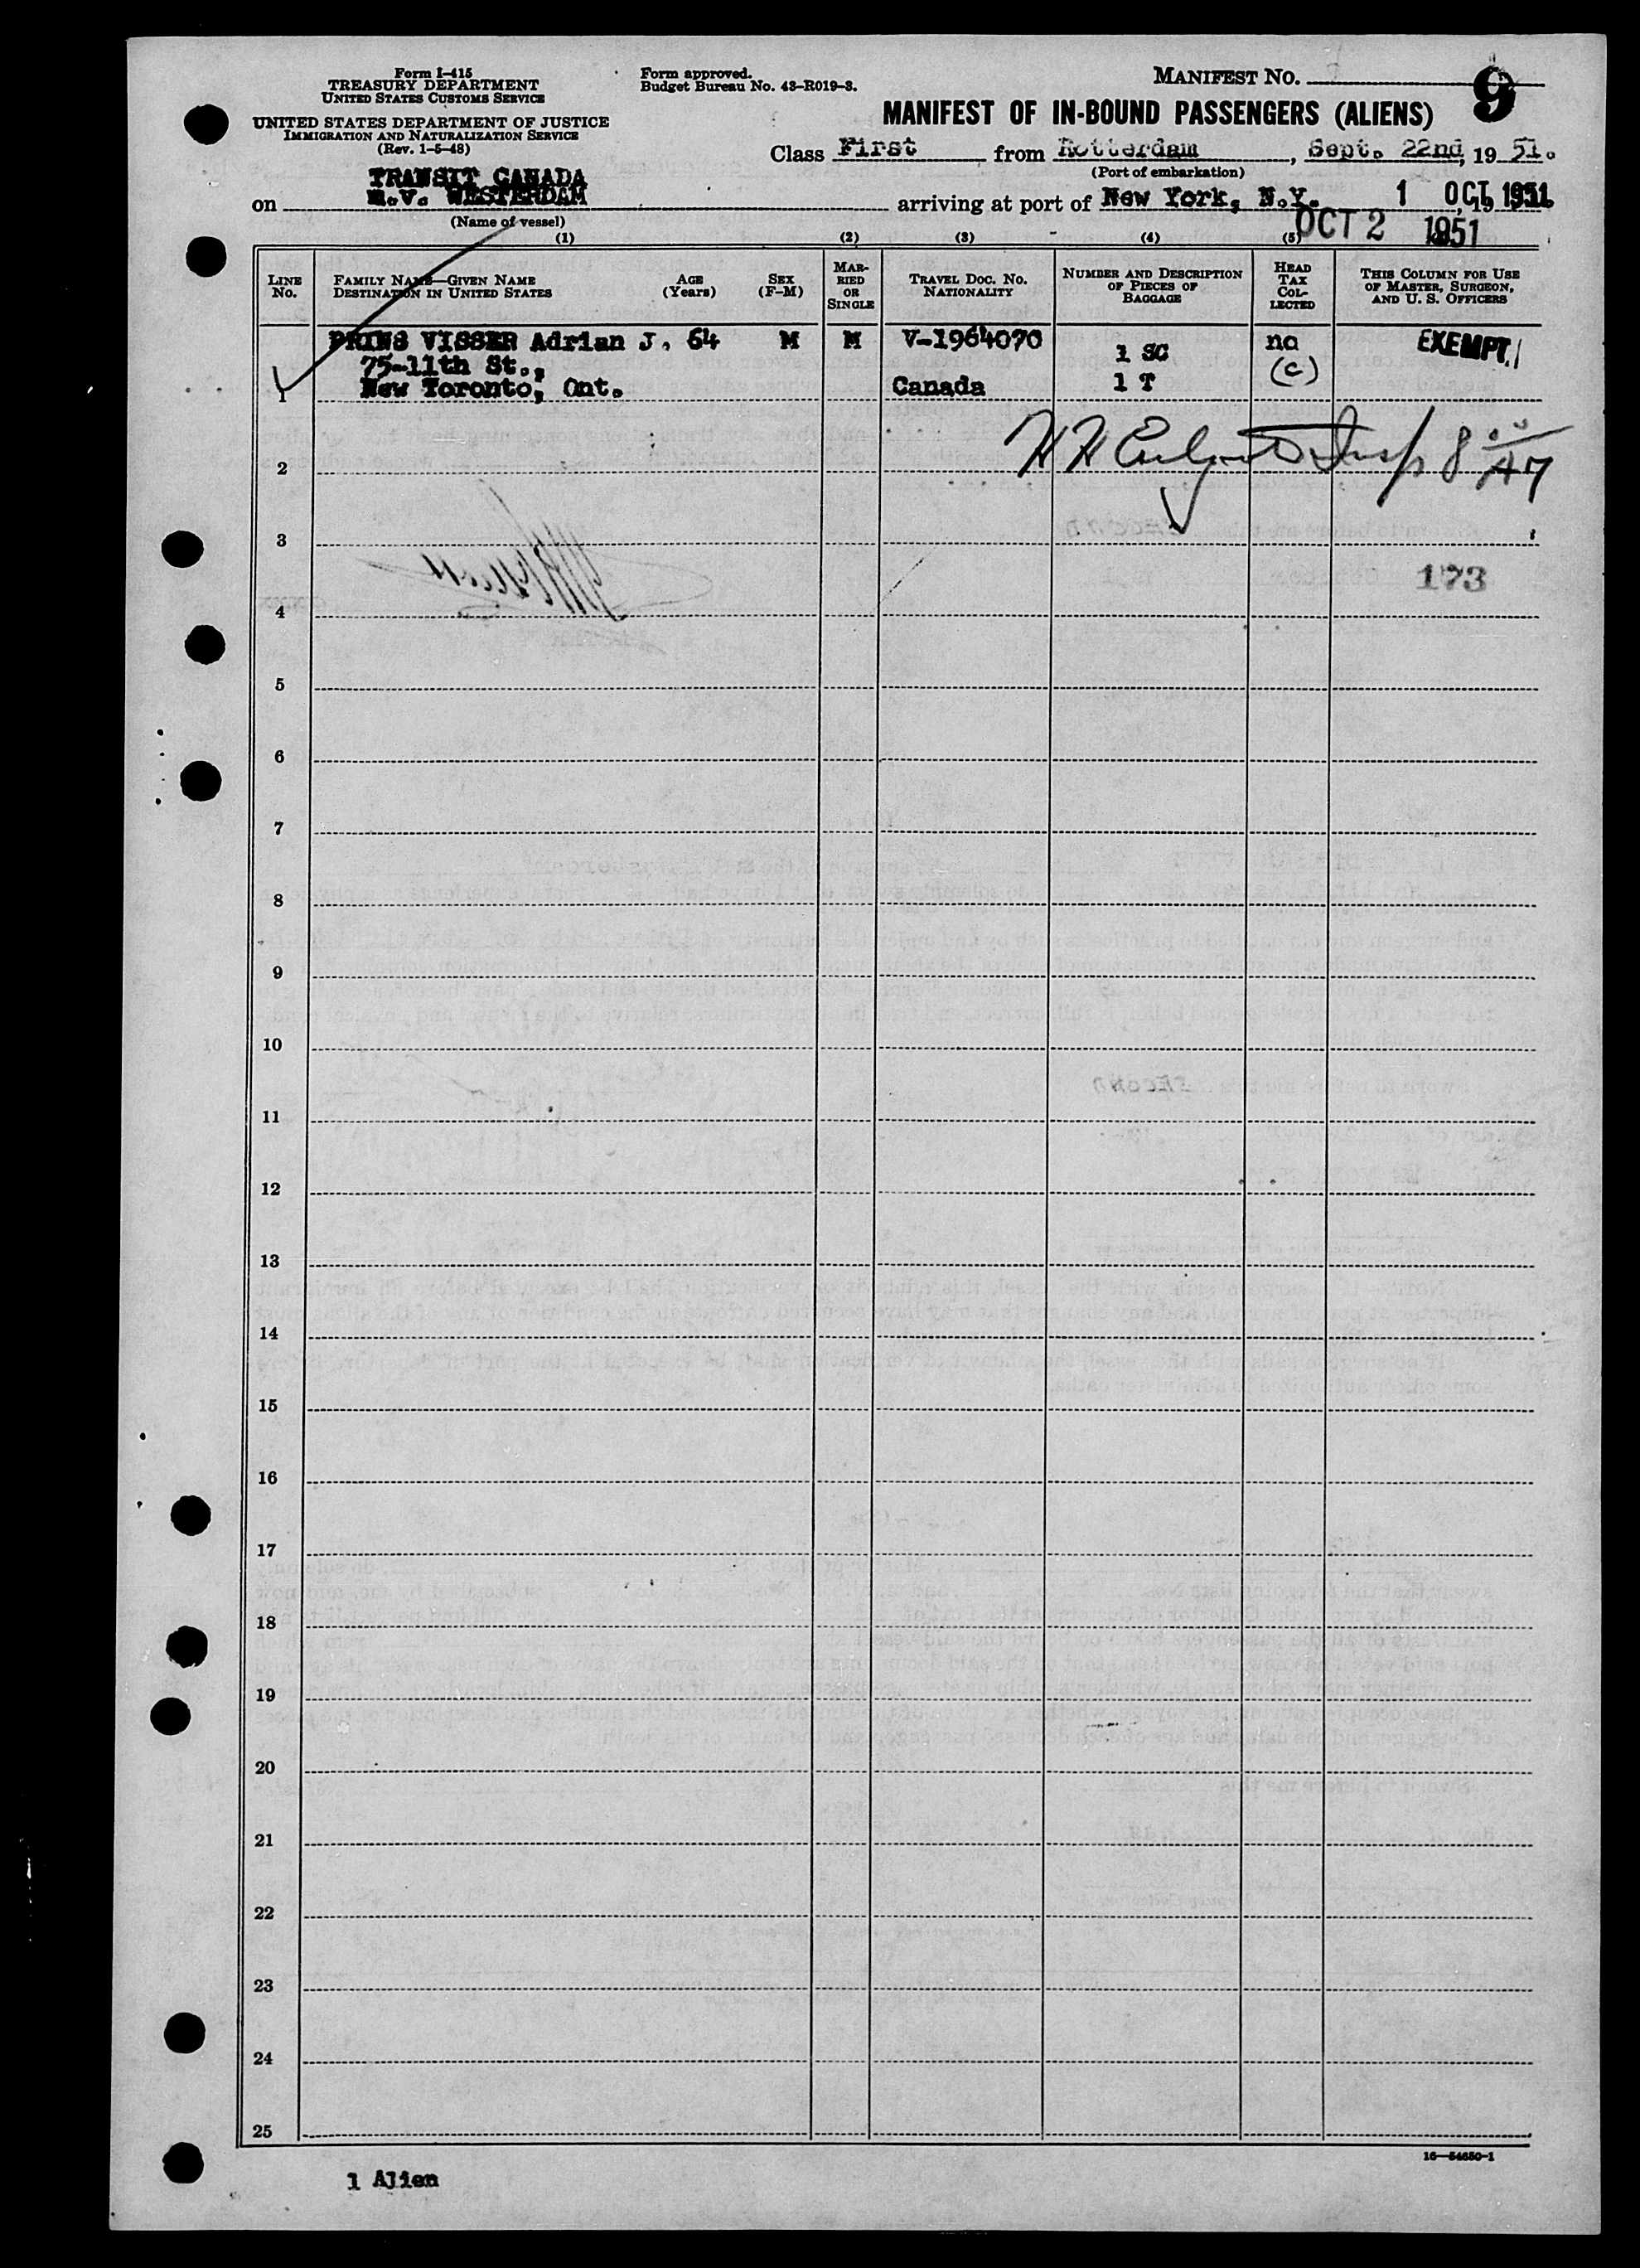 Form I-415
TREASURY DEPARTMENT
UNITED STATES CUSTOMS SERVICE
UNITED STATES DEPARTMENT OF JUSTICE
IMMIGRATION AND NATURALIZATION SERVICE
(Rev. 1-5-48)
Form approved.
Budget Bureau No. 43-R019-3.
MANIFEST NO. 9
MANIFEST OF IN-BOUND PASSENGERS (ALIENS)
Class First from Rotterdam, Sept. 22nd, 19 51.
(Port of embarkation)
TRANSIT CANADA
on M.V. WESTERDAM arriving at port of New York, N.Y. 1 OCT 1951
(Name of vessel)
OCT 2 1951
(1) (2) (3) (4) (5)
LINE NO.
FAMILY NAME—GIVEN NAME AGE SEX
DESTINATION IN UNITED STATES (Years) (F-M)
MARRIED OR SINGLE
TRAVEL DOC. NO. NATIONALITY
NUMBER AND DESCRIPTION OF PIECES OF BAGGAGE
HEAD TAX COLLECTED
THIS COLUMN FOR USE OF MASTER, SURGEON, AND U. S. OFFICERS
PRINS VISSER Adrian J. 64 M M V-1964070 1 SC na EXEMPT
75-11th St.,
1 New Toronto, Ont. Canada 1 T (C)
2
3
173
4
5
6
7
8
9
10
11
12
13
14
15
16
17
18
19
20
21
22
23
24
25
16—54650-1
1 Alien